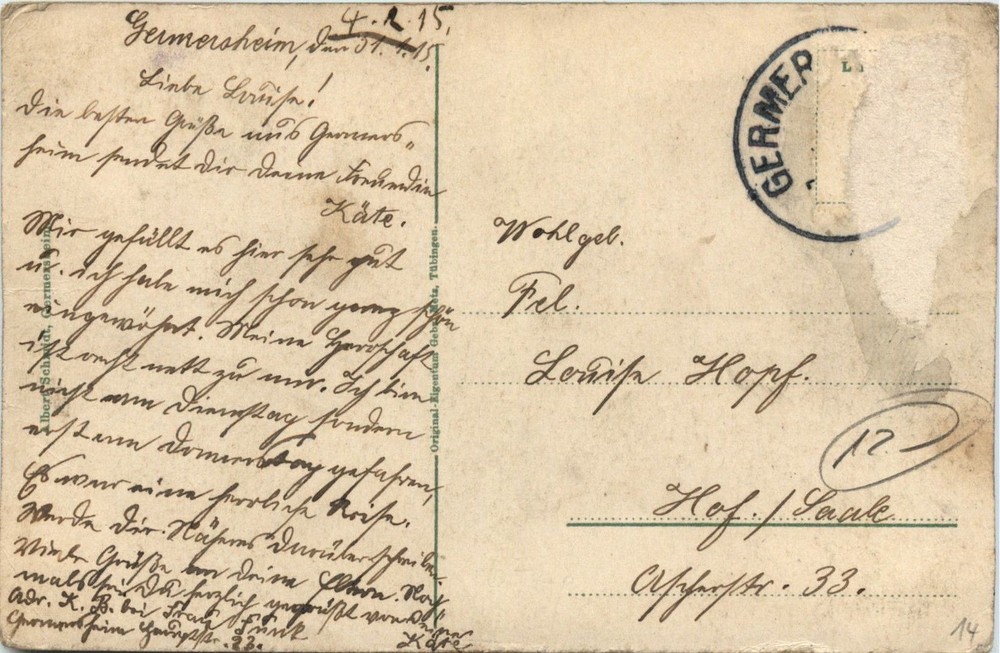 4. 2. 15.
Germersheim, den 31.1.15.
Liebe Louise!
Die besten Grüße aus Germers-
heim sendet Dir Deine Freundin
Käte.
Mir gefällt es hier sehr gut
u. ich habe mich schon ganz schön
eingewöhnt. Meine Herrschaft
ist recht nett zu mir. Ich bin
nicht am Dienstag sondern
erst am Donnerstag gefahren,
Es war eine herrliche Reise.
Werde Dir Näheres darüber schreiben.
Viele Grüße an Deine Eltern. Noch
mals sei Du herzlich gegrüßt von Deiner
Käte
Adr. K. B. bei Frau Funk
Germersheim Hauptstr. 23.
Albert Schmidt, Germersheim
Original-Eigentum Gebr. Metz, Tübingen.
GERMER
Wohlgeb.
Frl.
Louise Hopf.
12.
Hof. / Saale
Ascherstr. 33.
14